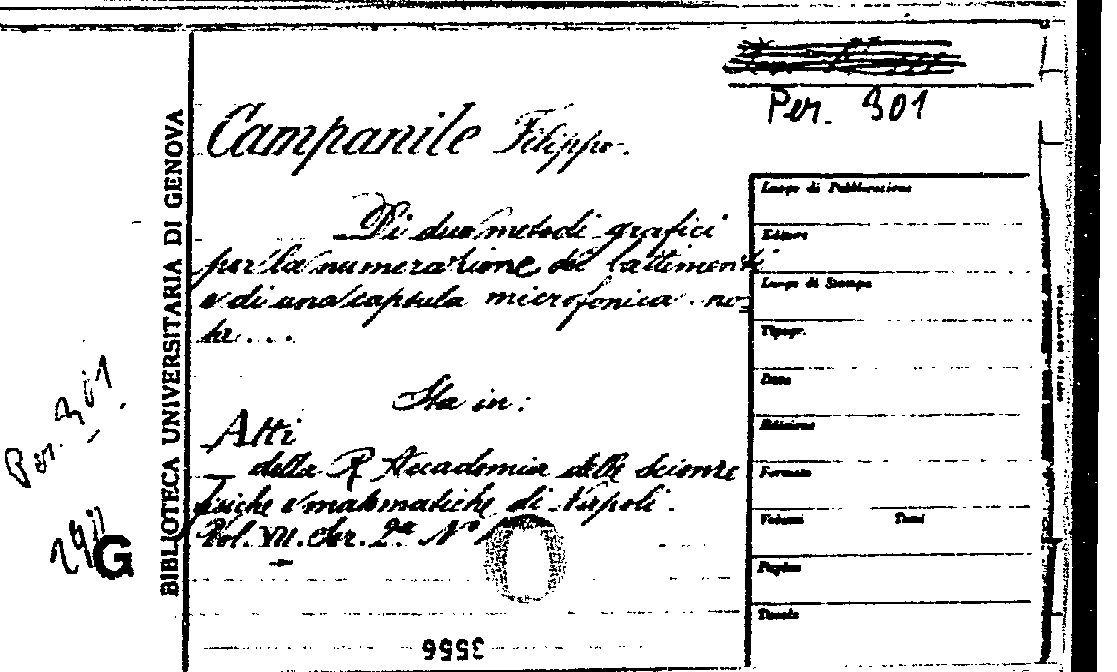 Per. 301
Campanile Filippo.
Di due metodi grafici
per la numerazione dei battimenti
e di una capsula microfonica. no-
ta...
Sta in:
Atti
della R. Accademia delle Scienze
fisiche e matematiche di Napoli.
Vol. VII. Ser. 2a No 1
3556
BIBLIOTECA UNIVERSITARIA DI GENOVA
Per. 301
G
Luogo di Pubblicazione
Editore
Luogo di Stampa
Tipogr.
Data
Edizione
Formato
Volume Tomi
Pagine
Tavole